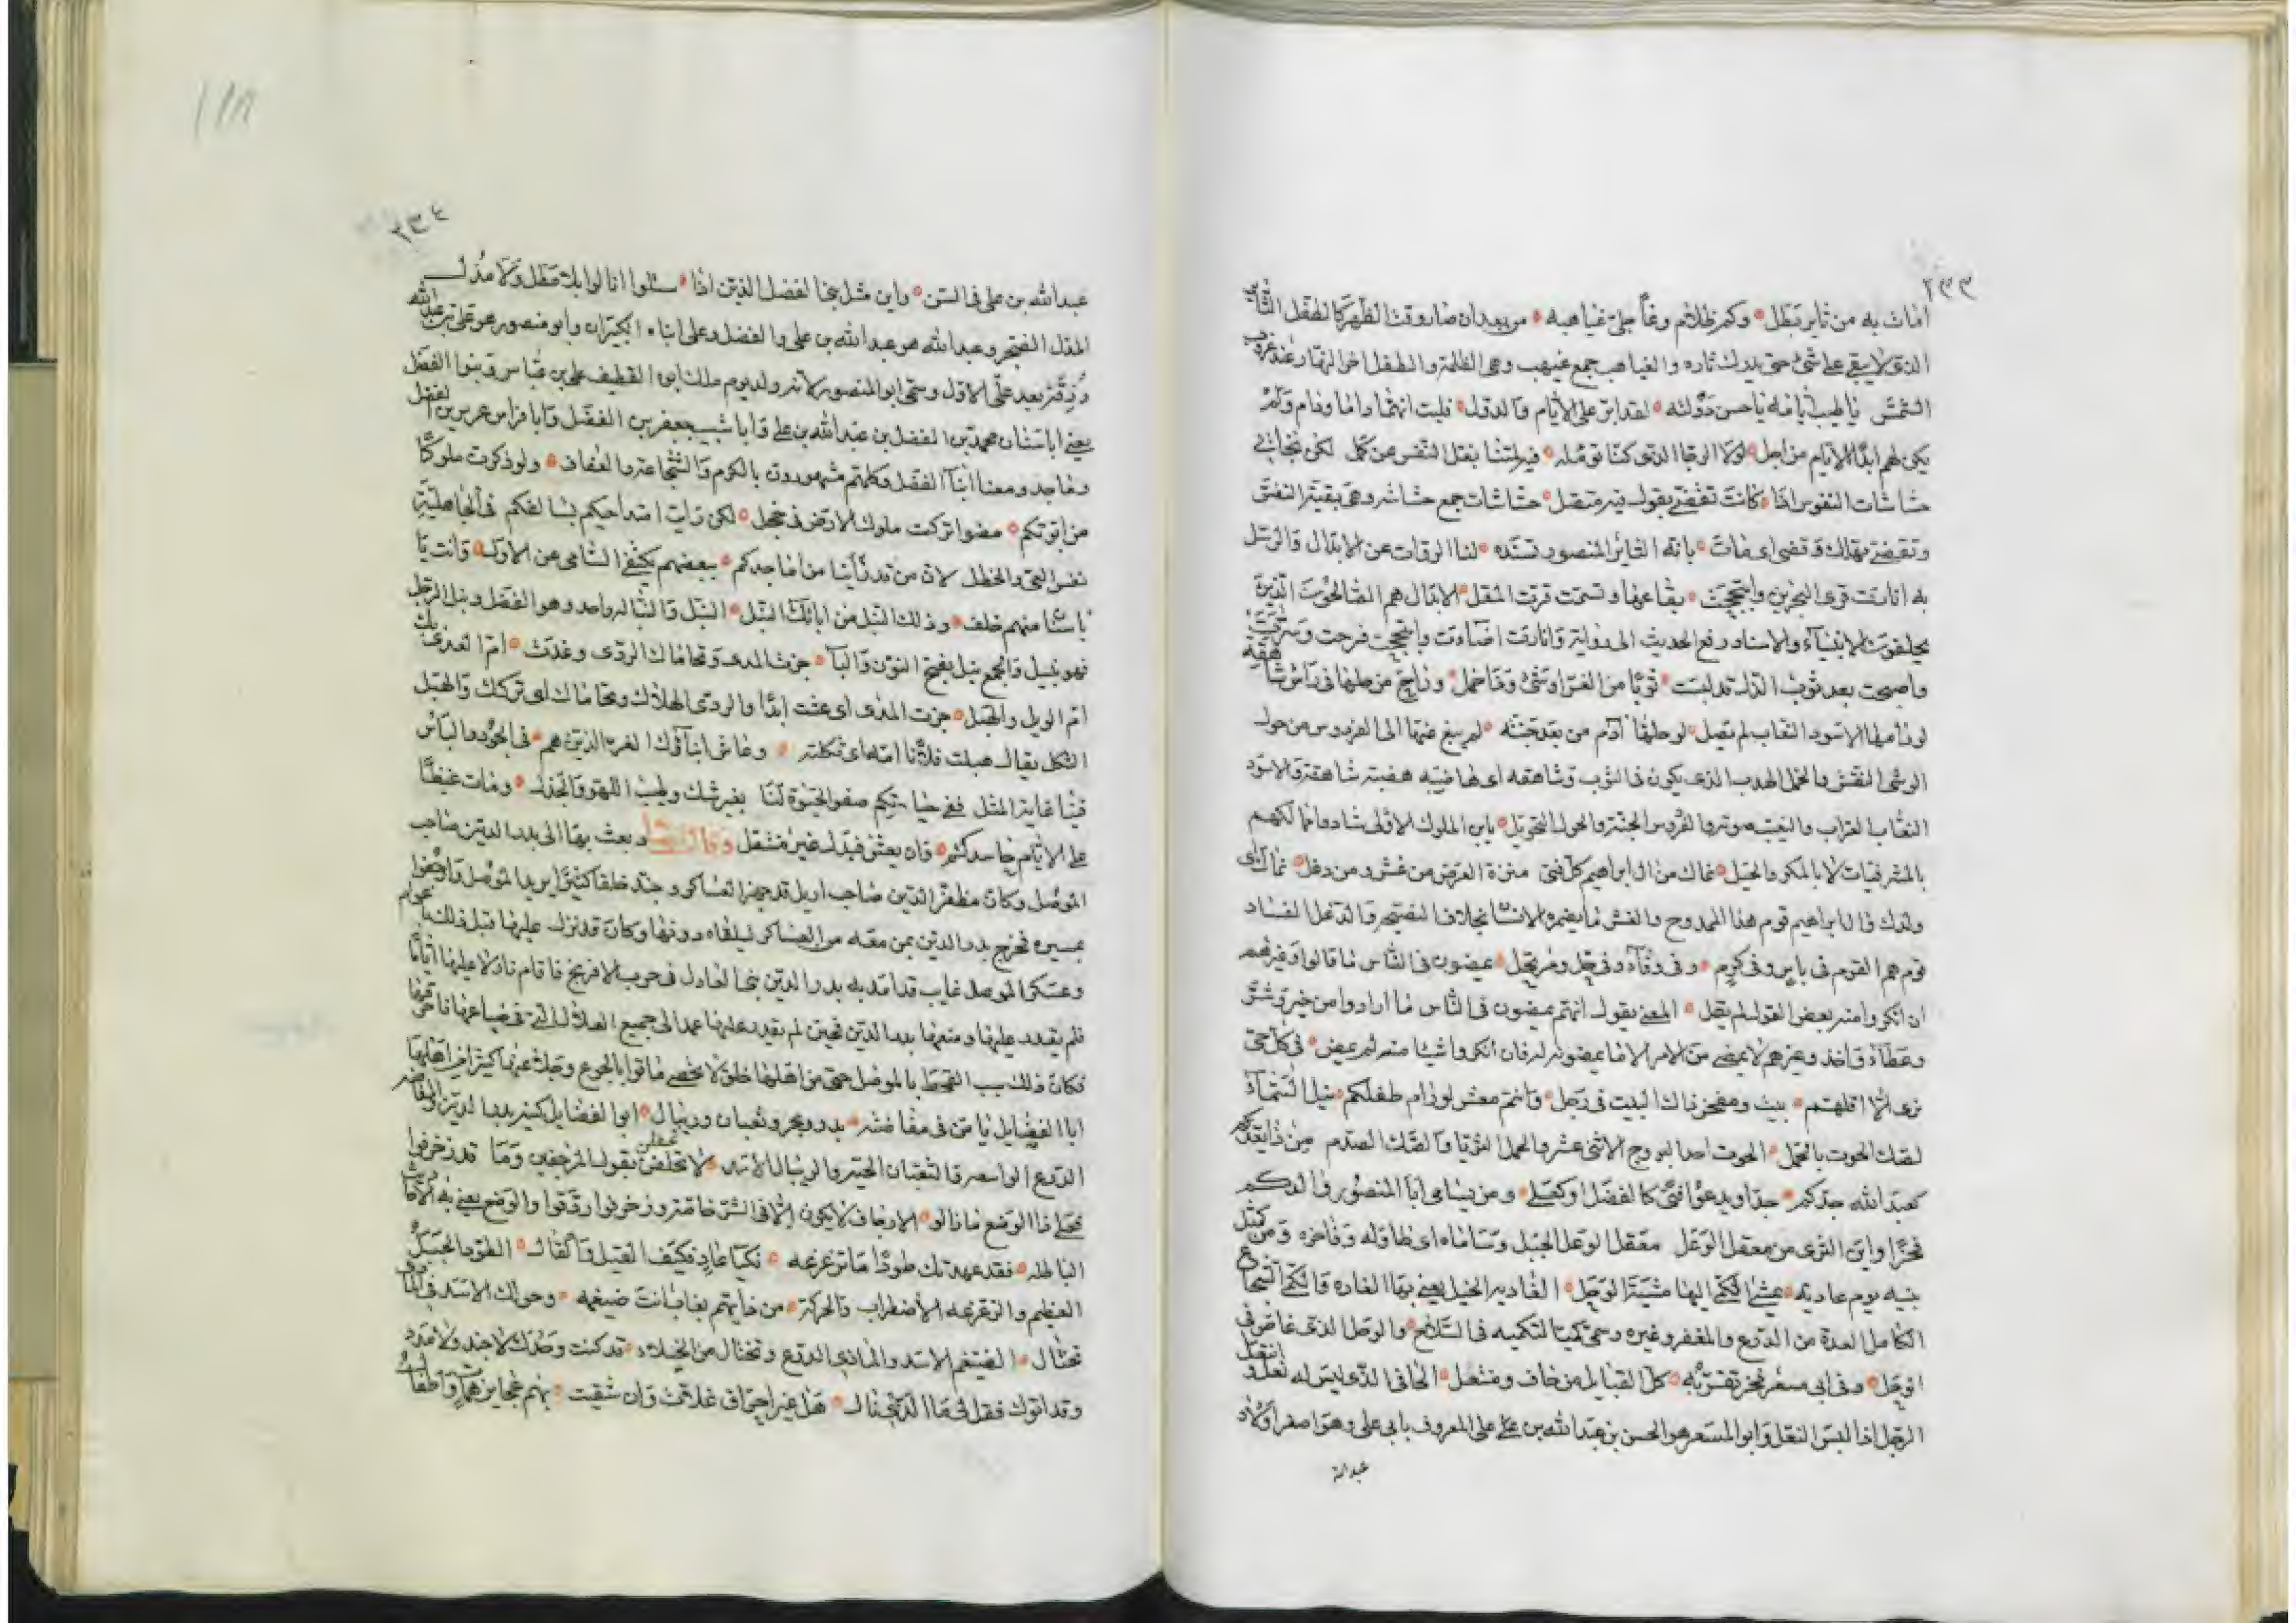 ٢٣٣
امات به من ثاير بطل وكم ظلام وغا جلى غياهبه من بعد ان صار وقت الظهر كالطفل الثاير
الذى لا يبقى على شئ حتى يدرك ثاره والغياهب جمع غيهب وهى الظلمة والطفل اخر النهار عند غروب
الشمس يا طيب ايامه يا حسن دولته لقد ابر على الايام والدول فليت انهما داما ودام ولم
يكن لهم ابدا الايام من اجل لولا الرجا الذى كنا نؤمله فيه لمتنا بقتل النفس عن كمل لكن نجا فى
حشاشات النفوس اذا كانت تفضى بقول فيه متصل حشاشات جمع حشاشه وهى بقية النفس
بانه الثاير المنصور تسنده لنا الروات عن الابدال والرسل
به انارت قرى البحرين وابتهجت بقاعها وتسمت قرت المقل الابدال هم الصالحون الذين
يخلفون الانبياء والاسناد رفع الحديث الى روايه وانارت اضاءت وابتهجت فرحت وسرت
واصبحت بعد ثوب الذل قد لبست ثوبا من العز
لو حلها ادم من بعد جنته لم يبغ عنها الى الفردوس من حول
الوشى النقش والخمل الهدب الذى يكون فى الثوب وشاهقه اى هضبه شاهقة والاسود
الغراب والنعيب صوته والفردوس الجنة والحول التحويل يابن الملوك الاولى شادوا ممالكهم
بالمشرفيات لا بالمكر والحيل نماك من ال ابراهيم كل فتى منزه العرض من غش ومن دغل نماك اى
ولدك وال ابراهيم قوم هذا الممدوح والغش ما يضمره الانسان بخلاف النصيحة والدغل الفساد
قوم هم القوم فى باس وفى كرم وفى وفاء وفى حل ومرتحل يمضون فى الناس ما قالوا وغيرهم
ان انكروا منه بعض القول لم يقل المعنى يقول انهم يمضون فى الناس ما ارادوا من خير وشر
وعطاء واخذ وغيرهم لا يمضى من الامر الا ما يمضونه له فان انكروا شيئا منه لم يمض فى كل حى
نرى الا اقلهم بيت ومفخر ذاك البيت فى رجل وانتم معشر لو رام طفلكم نيل السماء
لصك الحوت بالحمل الحوت احد البروج الاثنى عشر والحمل الثريا والصك الصدم من ذا يعد
كعبد الله جدكم جدا ويدعو فتى كالفضل او كعلى ومن يسامى ابا المنصور والدكم
فخرا واين الثرى من معقل الوعل معقل الوعل الجبل وتساماه اى طاوله وفاخره ومن كمثل
بنيه يوم عادية يمشى الكمى اليها مشية الوجل العاديه الخيل يعنى بها الغاره والكمى الشجاع
الكامل العدة من الدرع والمغفر وغيره وسمى كميا لتكميه فى السلاح والوحل الذى غاص فى
الوحل وفى ابى مسعر فخر تقر به كل القبايل من حاف ومنتعل الحافى الذى ليس له نعل وانتعل
الرجل اذا لبس النعل وابو المسعر هو الحسن بن عبد الله بن على المعروف بابى على وهو اصغر اولاد
عبد الله
٢٣٤
عبد الله بن على فى السن واين مثل بنى الفضل الذين اذا سئلوا انالوا بلا مطل ولا مذل
المذل الضجر وعبد الله هو عبد الله بن على والفضل وعلى ابناه الكبيران وابو منصور هو على بن عبد الله
رزقه بعد على الاول وسمى ابو المنصور لانه ولد يوم ملك ابوه القطيف على بن عباس وبنوا الفضل
يعنى ابا سنان محمد بن الفضل بن عبد الله بن على وابا شبيب جعفر بن الفضل وابا فراس غرير بن الفضل
وماجد ومعنا ابنا الفضل وكلهم مشهورون بالكرم والشجاعة والعفاف ولو ذكرت ملوكا
من ابوتكم مضوا تركت ملوك الارض فى خجل لكن رايت امتداحيكم بسالفكم فى الجاهلية
نفس الغى والخطل لان من قد راينا من اماجدكم ببعضهم يكتفى السامى عن الاول وانت يا
باسنا منهم خلف وذلك النبل من ابائك النبل النبل والنباله واحد وهو الفضل ونبل الرجل
فهو نبيل والجمع نبل بفتح النون والبا جزت المدى وتحاماك الردى وغدت ام المعزى بك
ام الويل والهبل جزت المدى اى عشت ابدا والردى الهلاك وتحاماك اى تركك والهبل
الثكل يقال هبلت فلانا امه اى ثكلته وعاش ابناؤك الغر الذين هم فى الجود والباس
فينا غاية المثل ففى حياتكم صفو الحيوة لنا بغير شك وطيب اللهو والجذل ومات غيظا
على الايام حاسدكم وان يعش فبذل غير منتقل وقال ايضا وبعث بها الى بدر الدين صاحب
الموصل وكان مظفر الدين صاحب اربل قد جهز العساكر وجند خلقا كثيرا يريد الموصل
بمسيره فخرج بدر الدين بمن معه من العساكر ليلقاه دونها وكان قد نزل عليها قبل ذلك
وعسكر الموصل غايب قد امد به بدر الدين بنى العادل فى حرب الافرنج فاقام نازلا عليها اياما
فلم يقدر عليها ومنعها بدر الدين فحين لم يقدر عليها عمد الى جميع الغلال التى فى ضياعها فاحرقها
فكان ذلك سبب القحط بالموصل حتى من اهلها خلق لا يحصى ماتوا بالجوع وجلى عنها كثير من اهلها
ابا الفضايل يا من فى مفاضته بدر وبحر وثعبان وريبال ابو الفضايل كنية بدر الدين والمفاضه
الدرع الواسعه والثعبان الحيه والريبال الاسد لا تحفلن بقول المرجفين وما قد زخرفوا
الارجاف لا يكون الا فى الشر خاصه وزخرفوا زوقوا
الباطله فقد عهدتك طودا ما تزعزعه نكباء عاد فكيف القيل والقال الطود الجبل
العظيم والزعزعه الاضطراب والحركة من ضيغمه وحولك الاسد فى الماذى
تختال الضيغم الاسد والماذى الدرع وتختال من الخيلاء قد كنت وحدك لا جند ولا عدد
وقد اتوك فقل لى ما الذى نال هل غير احراق غلات وان شقيت بهم عجايز واطفال